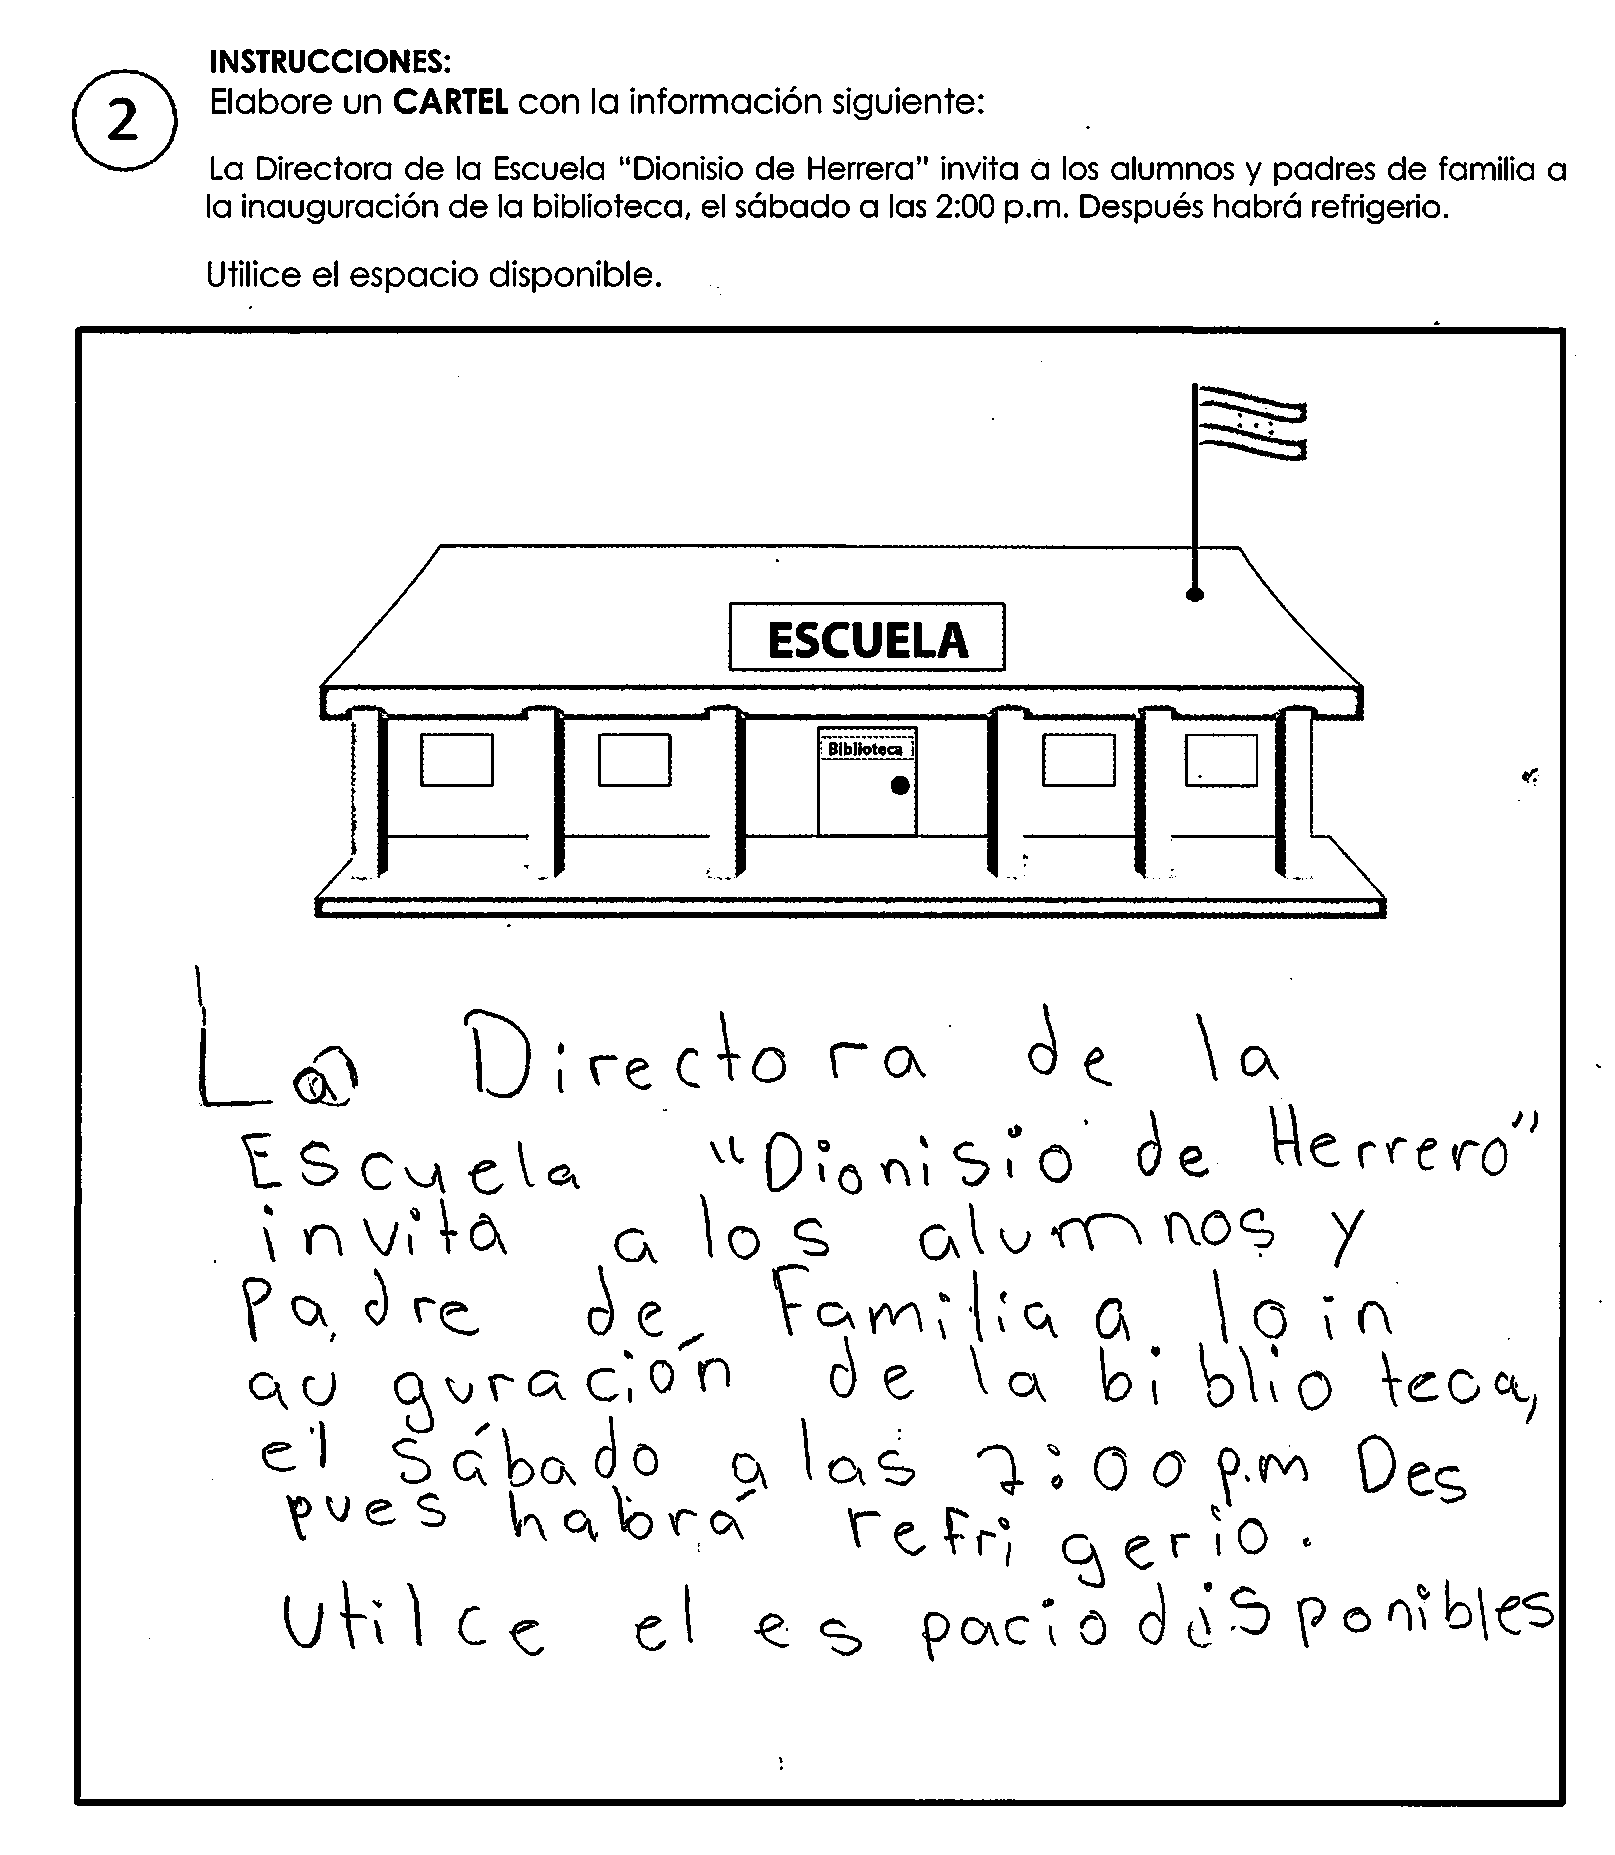 INSTRUCCIONES:
2
Elabore un CARTEL con la información siguiente:
La Directora de la Escuela "Dionisio de Herrera" invita a los alumnos y padres de familia a
la inauguración de la biblioteca, el sábado a las 2:00 p.m. Después habrá refrigerio.
Utilice el espacio disponible.
ESCUELA
Biblioteca
La Directora de la
Escuela "Dionisio de Herrero"
invita a los alumnos y
Padre de Familia a lo in
au guración de la biblio teca,
el Sábado a las 2:00 p.m Des
pues habrá refri gerio.
Utilce el es pacio disponibles